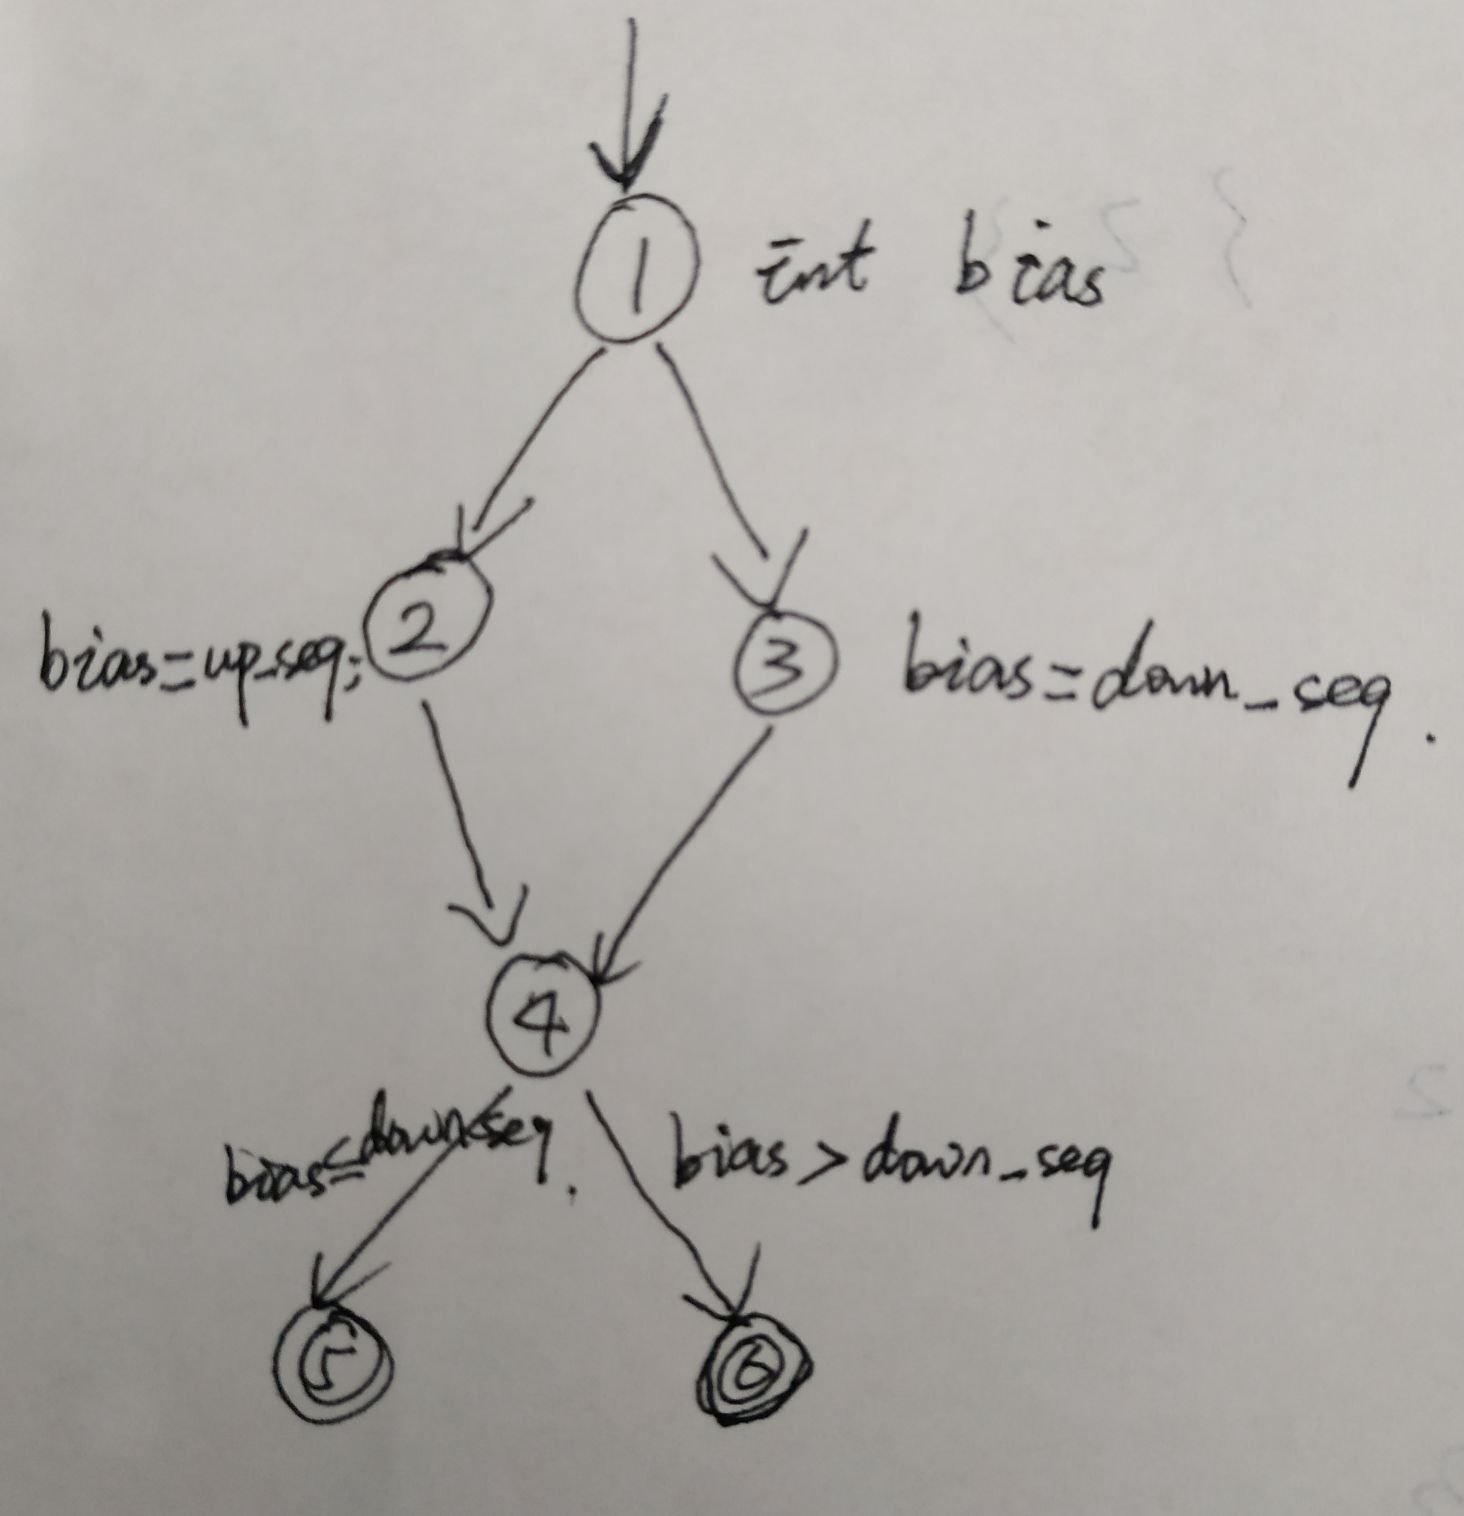 1 int bias
bias=up_seq; 2
3 bias=down_seq.
4
bias≤down_seq.
bias>down_seq
5
6